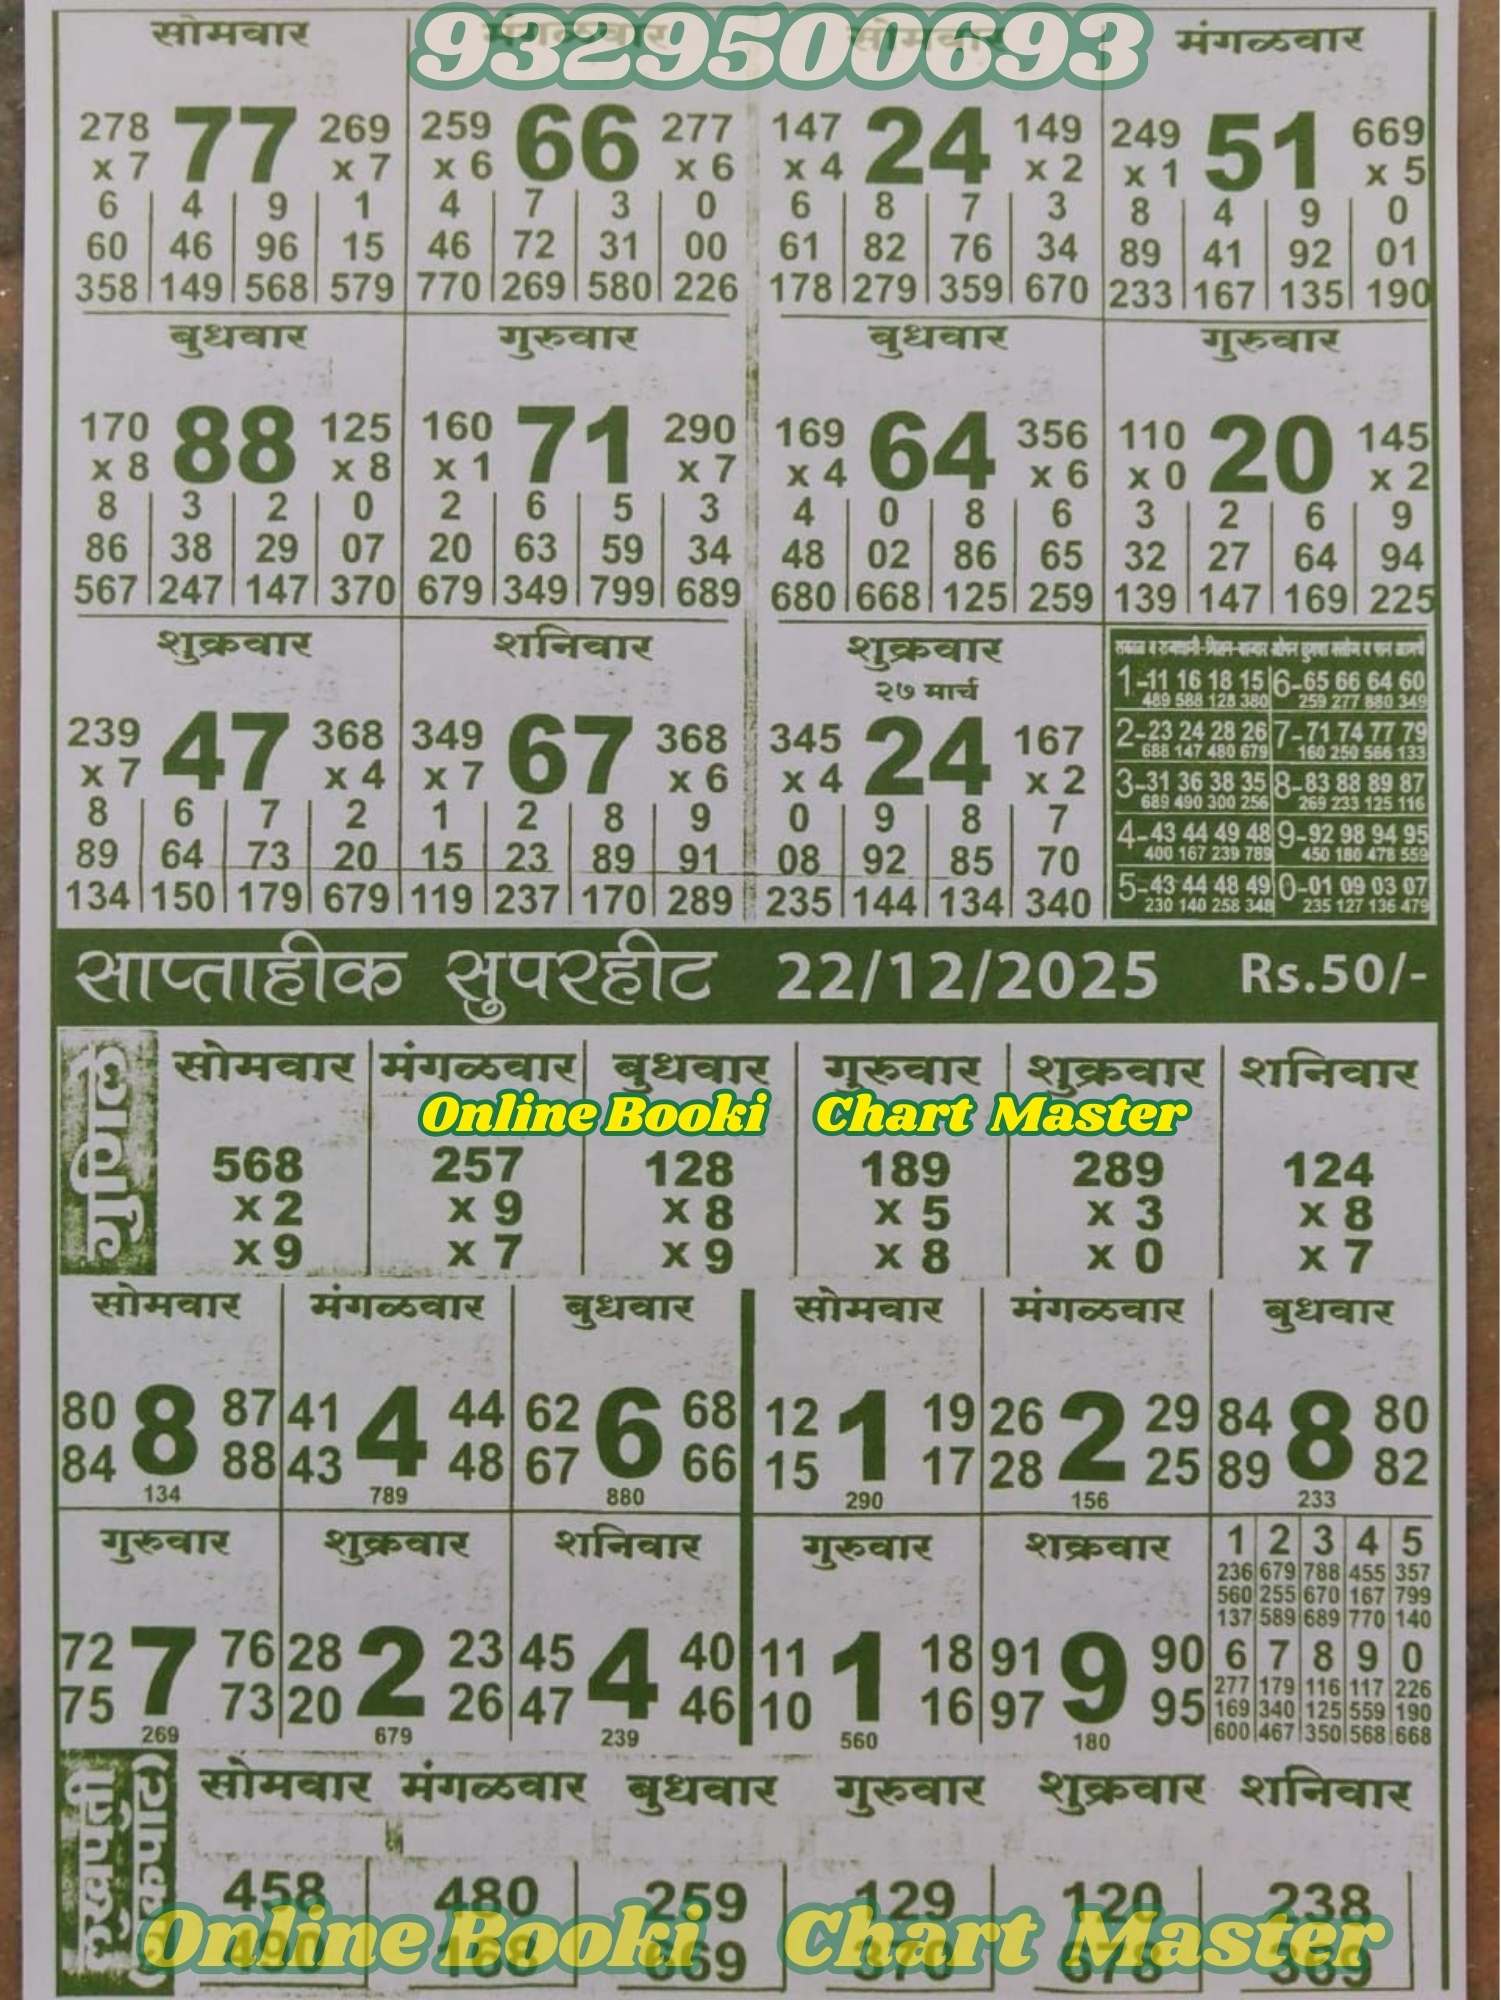 9329500693
सोमवार मंगळवार सोमवार मंगळवार
278 77 269 259 66 277 147 24 149 249 51 669
x 7 x 7 x 6 x 6 x 4 x 2 x 1 x 5
6 4 9 1 4 7 3 0 6 8 7 3 8 4 9 0
60 46 96 15 46 72 31 00 61 82 76 34 89 41 92 01
358 149 568 579 770 269 580 226 178 279 359 670 233 167 135 190
बुधवार गुरुवार बुधवार गुरुवार
170 88 125 160 71 290 169 64 356 110 20 145
x 8 x 8 x 1 x 7 x 4 x 6 x 0 x 2
8 3 2 0 2 6 5 3 4 0 8 6 3 2 6 9
86 38 29 07 20 63 59 34 48 02 86 65 32 27 64 94
567 247 147 370 679 349 799 689 680 668 125 259 139 147 169 225
शुक्रवार शनिवार शुक्रवार
२७ मार्च
239 47 368 349 67 368 345 24 167
x 7 x 4 x 7 x 6 x 4 x 2
8 6 7 2 1 2 8 9 0 9 8 7
89 64 73 20 15 23 89 91 08 92 85 70
134 150 179 679 119 237 170 289 235 144 134 340
1-11 16 18 15 6-65 66 64 60
489 588 128 380 259 277 880 349
2-23 24 28 26 7-71 74 77 79
688 147 480 679 160 250 566 133
3-31 36 38 35 8-83 88 89 87
689 490 300 256 269 233 125 116
4-43 44 49 48 9-92 98 94 95
400 167 239 789 450 180 478 559
5-43 44 48 49 0-01 09 03 07
230 140 258 348 235 127 136 479
साप्ताहीक सुपरहीट 22/12/2025 Rs.50/-
गुणित
सोमवार मंगळवार बुधवार गुरुवार शुक्रवार शनिवार
Online Booki Chart Master
568 257 128 189 289 124
x 2 x 9 x 8 x 5 x 3 x 8
x 9 x 7 x 9 x 8 x 0 x 7
सोमवार मंगळवार बुधवार सोमवार मंगळवार बुधवार
80 8 87 41 4 44 62 6 68 12 1 19 26 2 29 84 8 80
84 88 43 48 67 66 15 17 28 25 89 82
134 789 880 290 156 233
गुरुवार शुक्रवार शनिवार गुरुवार शक्रवार
72 7 76 28 2 23 45 4 40 11 1 18 91 9 90
75 73 20 26 47 46 10 16 97 95
269 679 239 560 180
1 2 3 4 5
236 679 788 455 357
560 255 670 167 799
137 589 689 770 140
6 7 8 9 0
277 179 116 117 226
169 340 125 559 190
600 467 350 568 668
लखपती
सोमवार मंगळवार बुधवार गुरुवार शुक्रवार शनिवार
458 480 259 129 120 238
490 168 669 370 678 369
Online Booki Chart Master